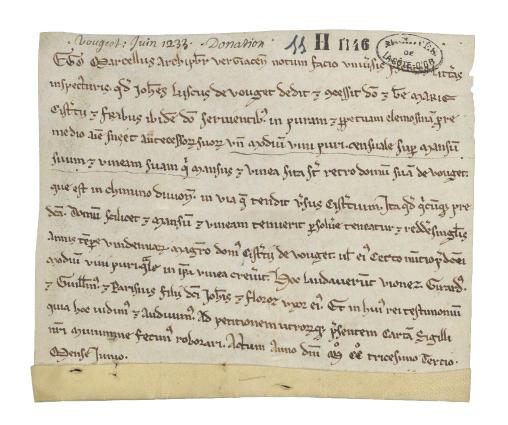 Vougeot : Juin 1233. Donation 11 H 1146
Archives Dép. DE LA COTE-D'OR
Ego Marcellus Archipbr vergiacen notum facio univsis litteras
inspecturis. qd Johes Luscus de vouget dedit ⁊ concessit do ⁊ be marie
Cisterc ⁊ fribus ibide do servientib in puram ⁊ ppetuam elemosina p re
medio aie sue et antecessor suor unu modiu vini puri censuale sup mansu
suum ⁊ vineam sua q mansus ⁊ vinea sita st retro domu sua de vouget.
que est in chimino divion. in via q tendit vsus Cistercium. Ita qd qcuq pre
dca. Domu scilicet ⁊ mansu ⁊ vineam tenuerit psolve teneatur ⁊ redde singlis
Annis tepe vindemiar magro dom Cisterc de vouget. ul ei certo nuncio pdcm
modiu vini puri qle in ipa vinea crevit. Hoc laudaverut vionez. Girard.
⁊ Guillm ⁊ Parisius filii dci Johis ⁊ floror uxor ei. Et in hui rei testimoniu
quia hoc vidim ⁊ audivim. Ad petitionem utrorq psentem Carta sigilli
nri munimine fecim roborari. Actum Anno dni mo cco tricesimo Tercio.
Mense Junio.